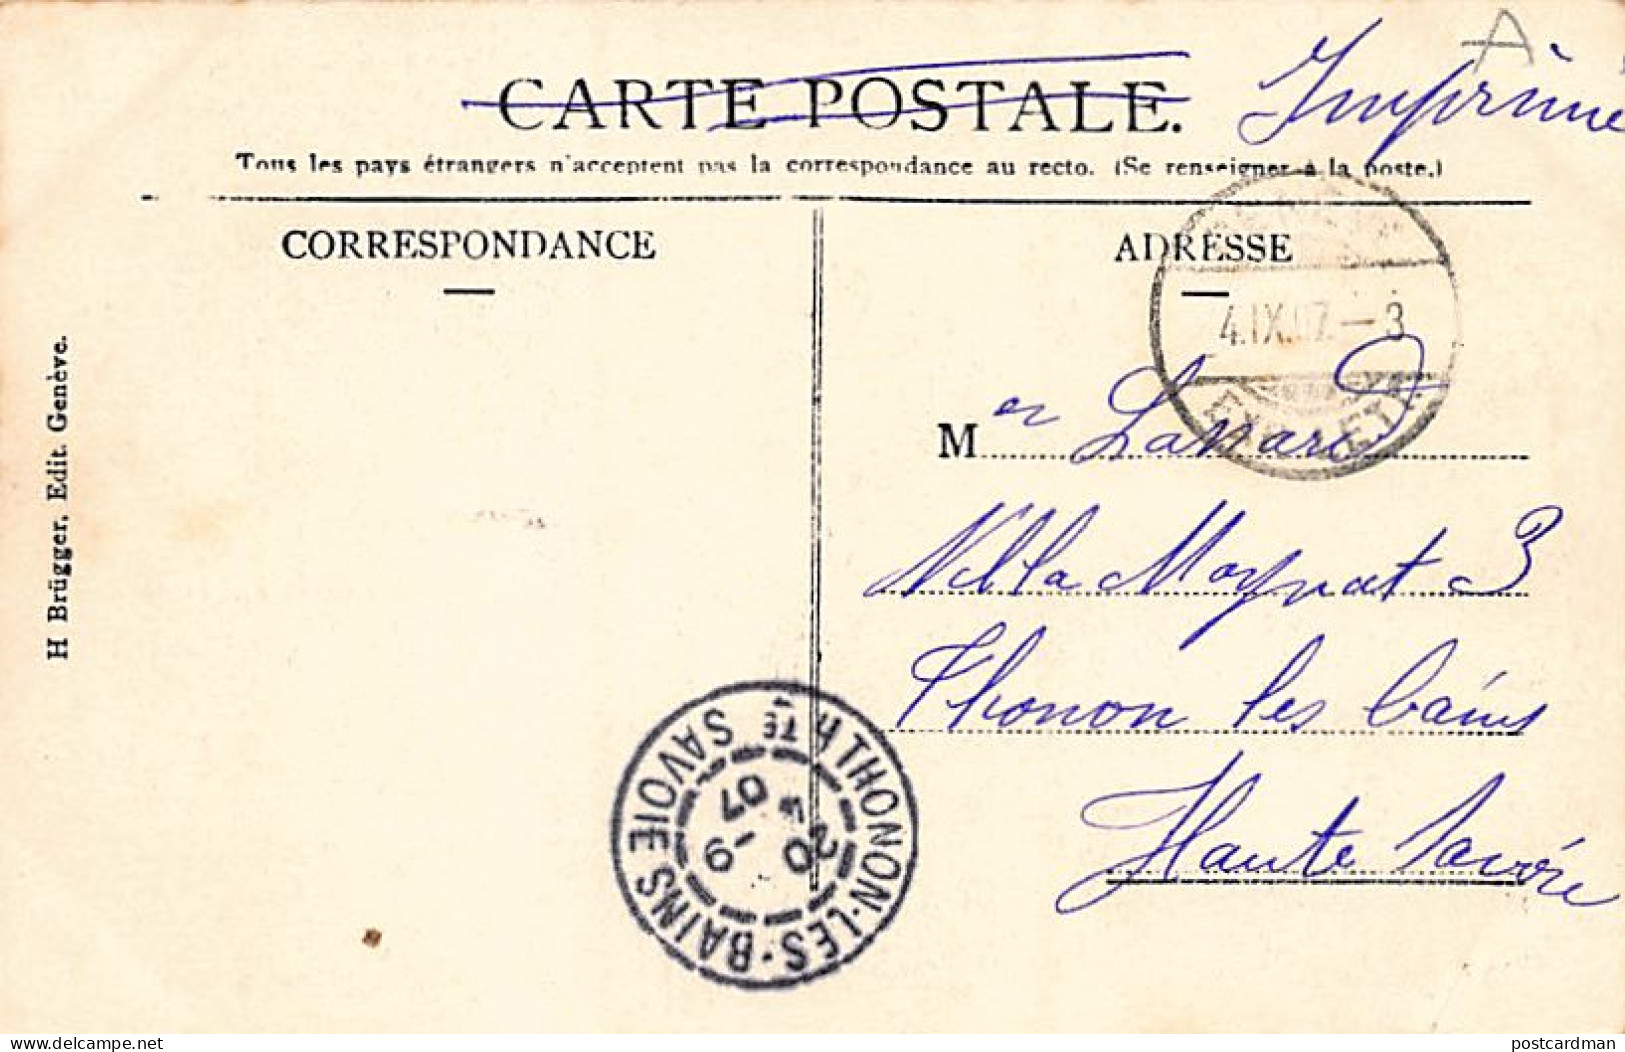 A
CARTE POSTALE. Imprimé
Tous les pays étrangers n'acceptent pas la correspondance au recto. (Se renseigner à la poste.)
CORRESPONDANCE
ADRESSE
4.IX.07.—3
EXP. LETT.
Mer Lanard
Villa Moynat 3
Thonon les bains
Haute Savoie
H Brügger, Edit. Genève.
THONON-LES-BAINS
HTE SAVOIE
5 -9
07
delcampe.net
postcardman